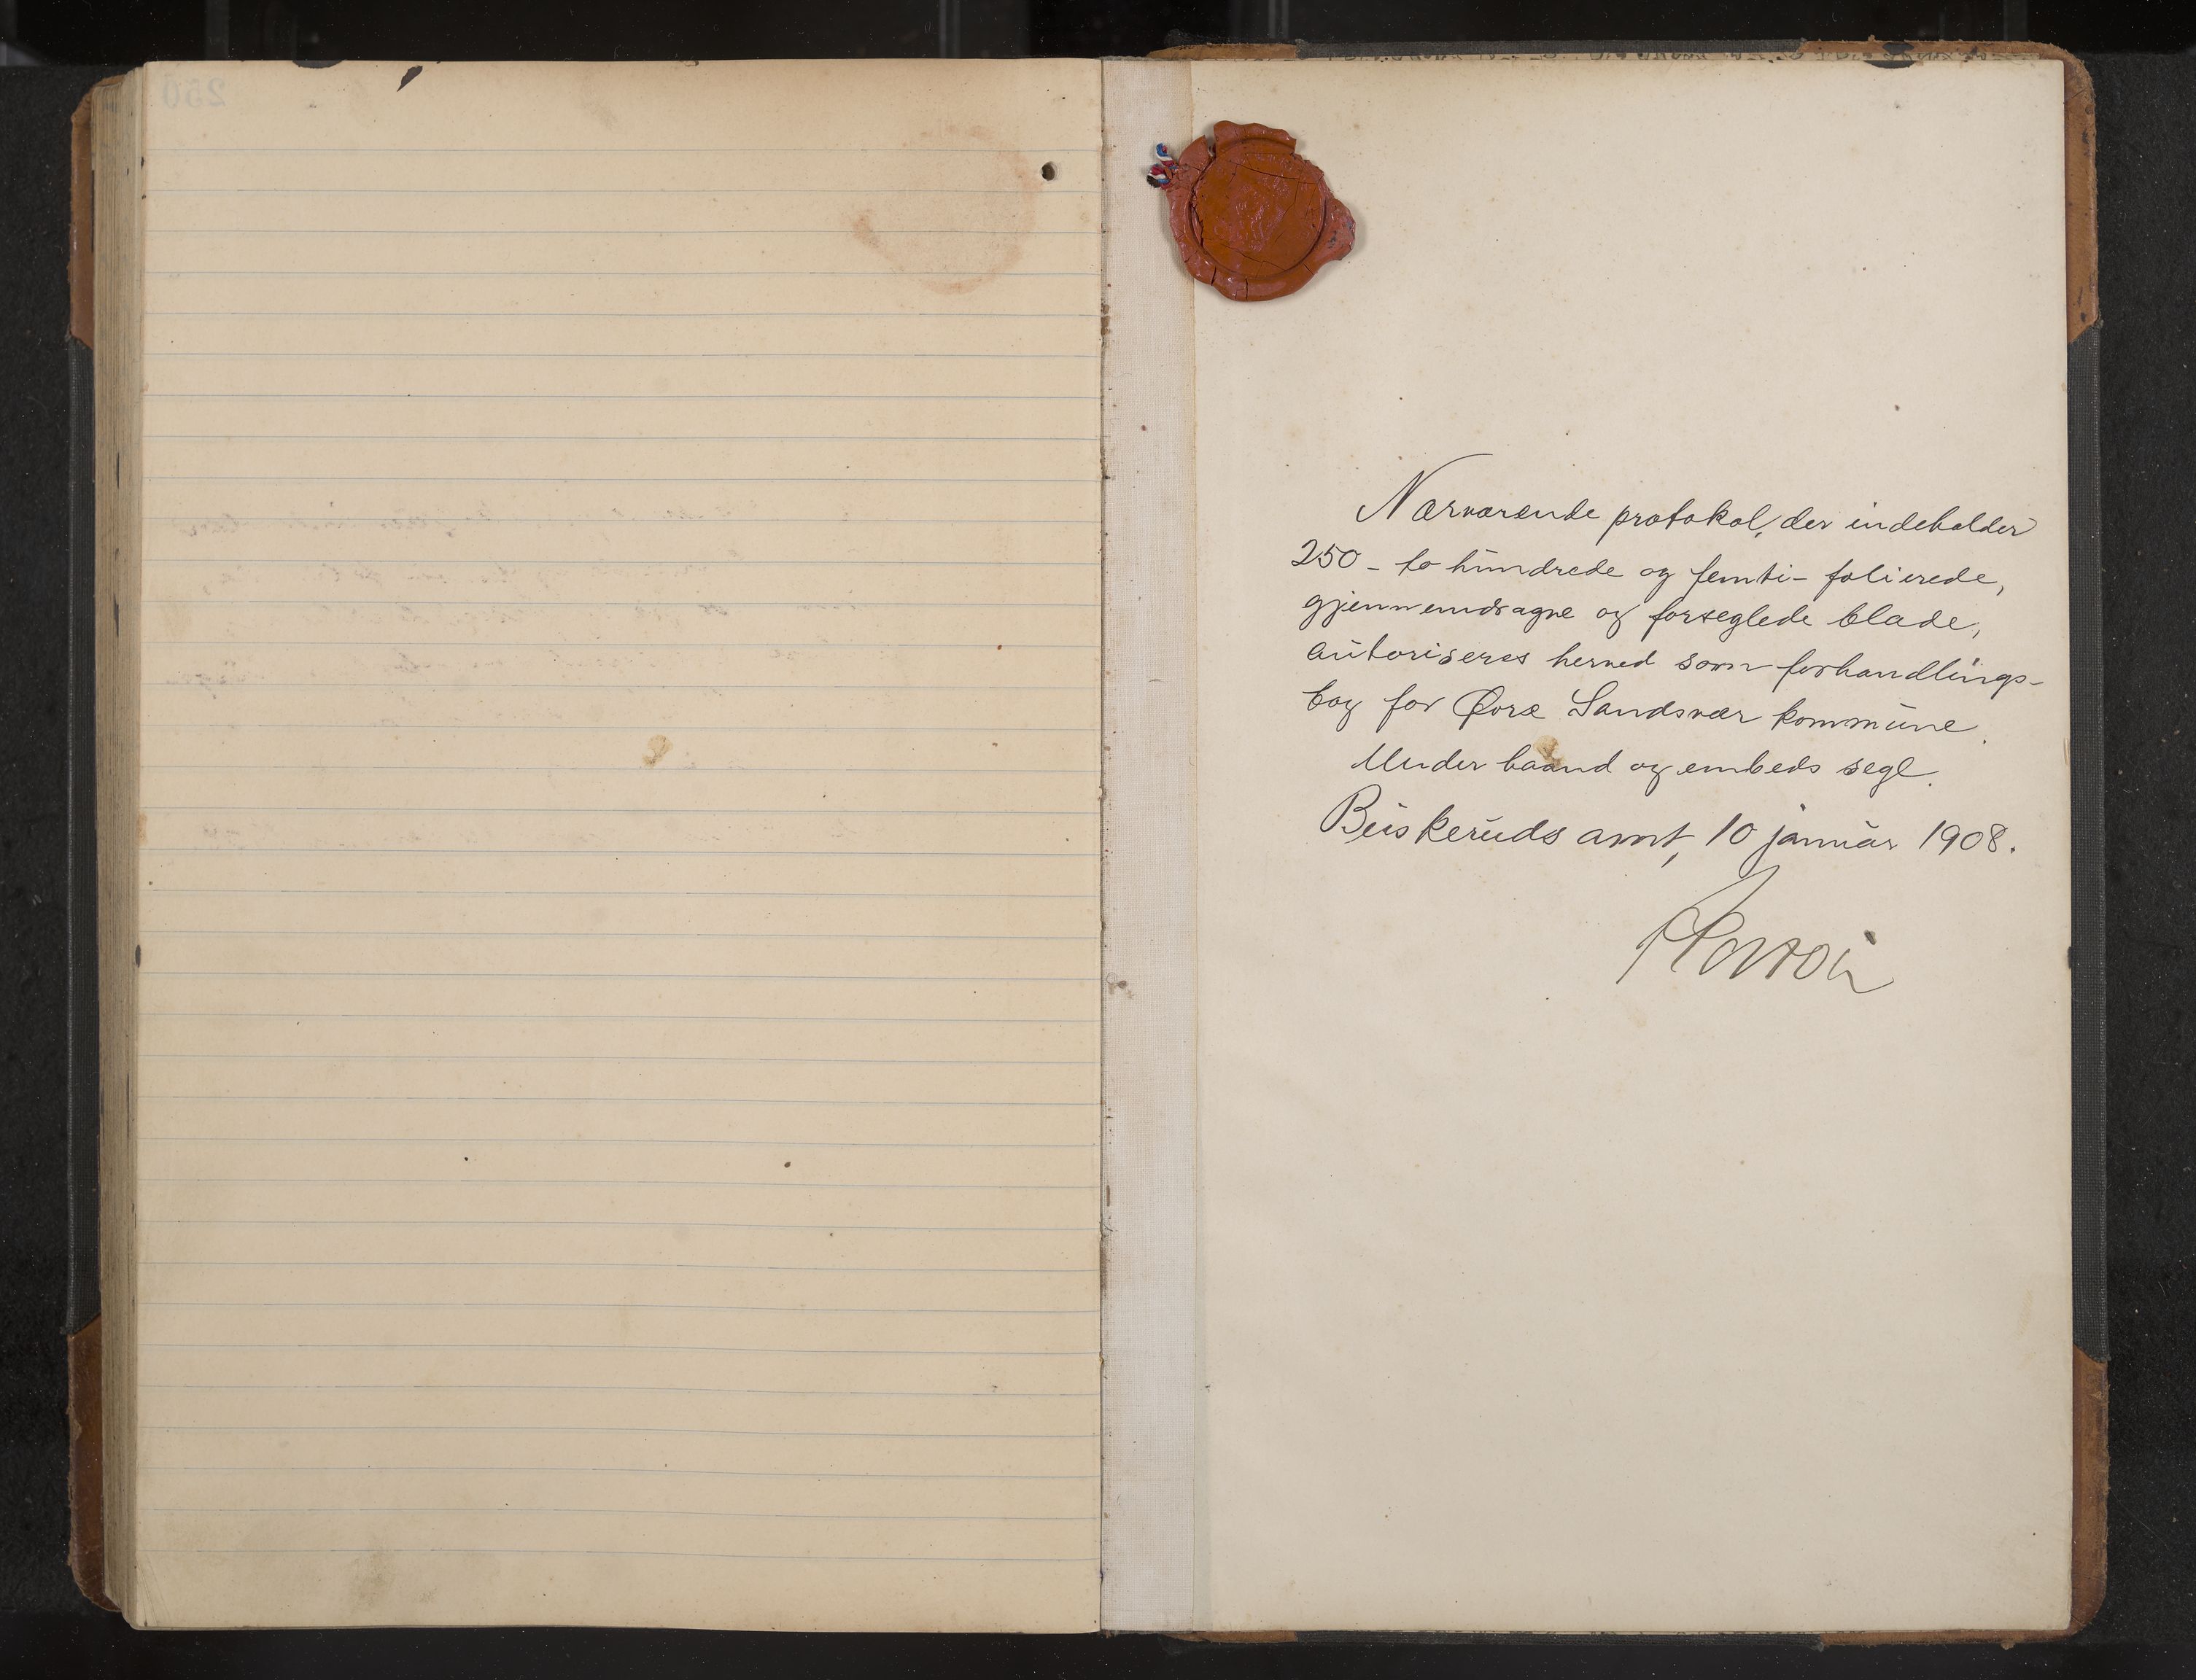 Nærværende protokol, der indeholder
250 - to hundrede og femti - folierede,
gjennemdragne og forseglede blade,
autoriseres herved som forhandlings-
bog for Øvre Sandsvær kommune.
Under haand og embeds segl.
Buskeruds amt, 10 januar 1908.